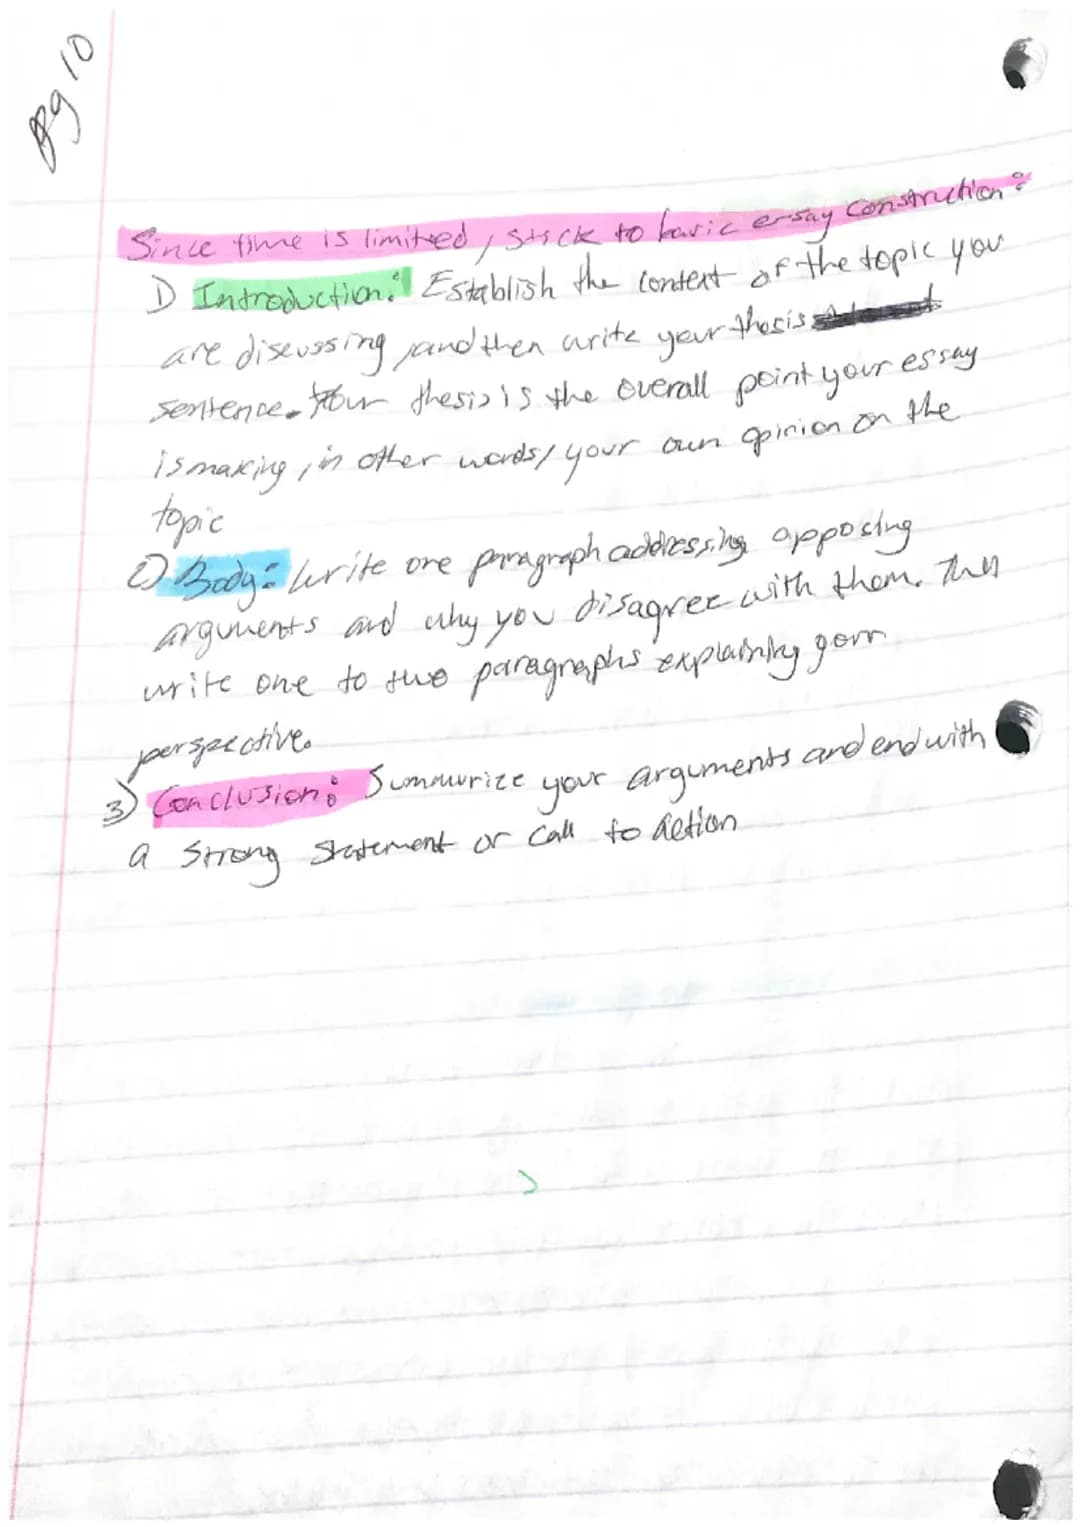 Pg 10
Since time is limited, stick to basic essay construction:
1) Introduction: Establish the context of the topic you
are discussing, and then write your thesis
sentence. Your thesis is the overall point your essay
is making, in other words, your own opinion on the
topic
2) Body: Write one paragraph addressing opposing
arguments and why you disagree with them. Then
write one to two paragraphs explaining your
perspective.
3) Conclusion: Summurize your arguments and end with
a strong statement or call to action